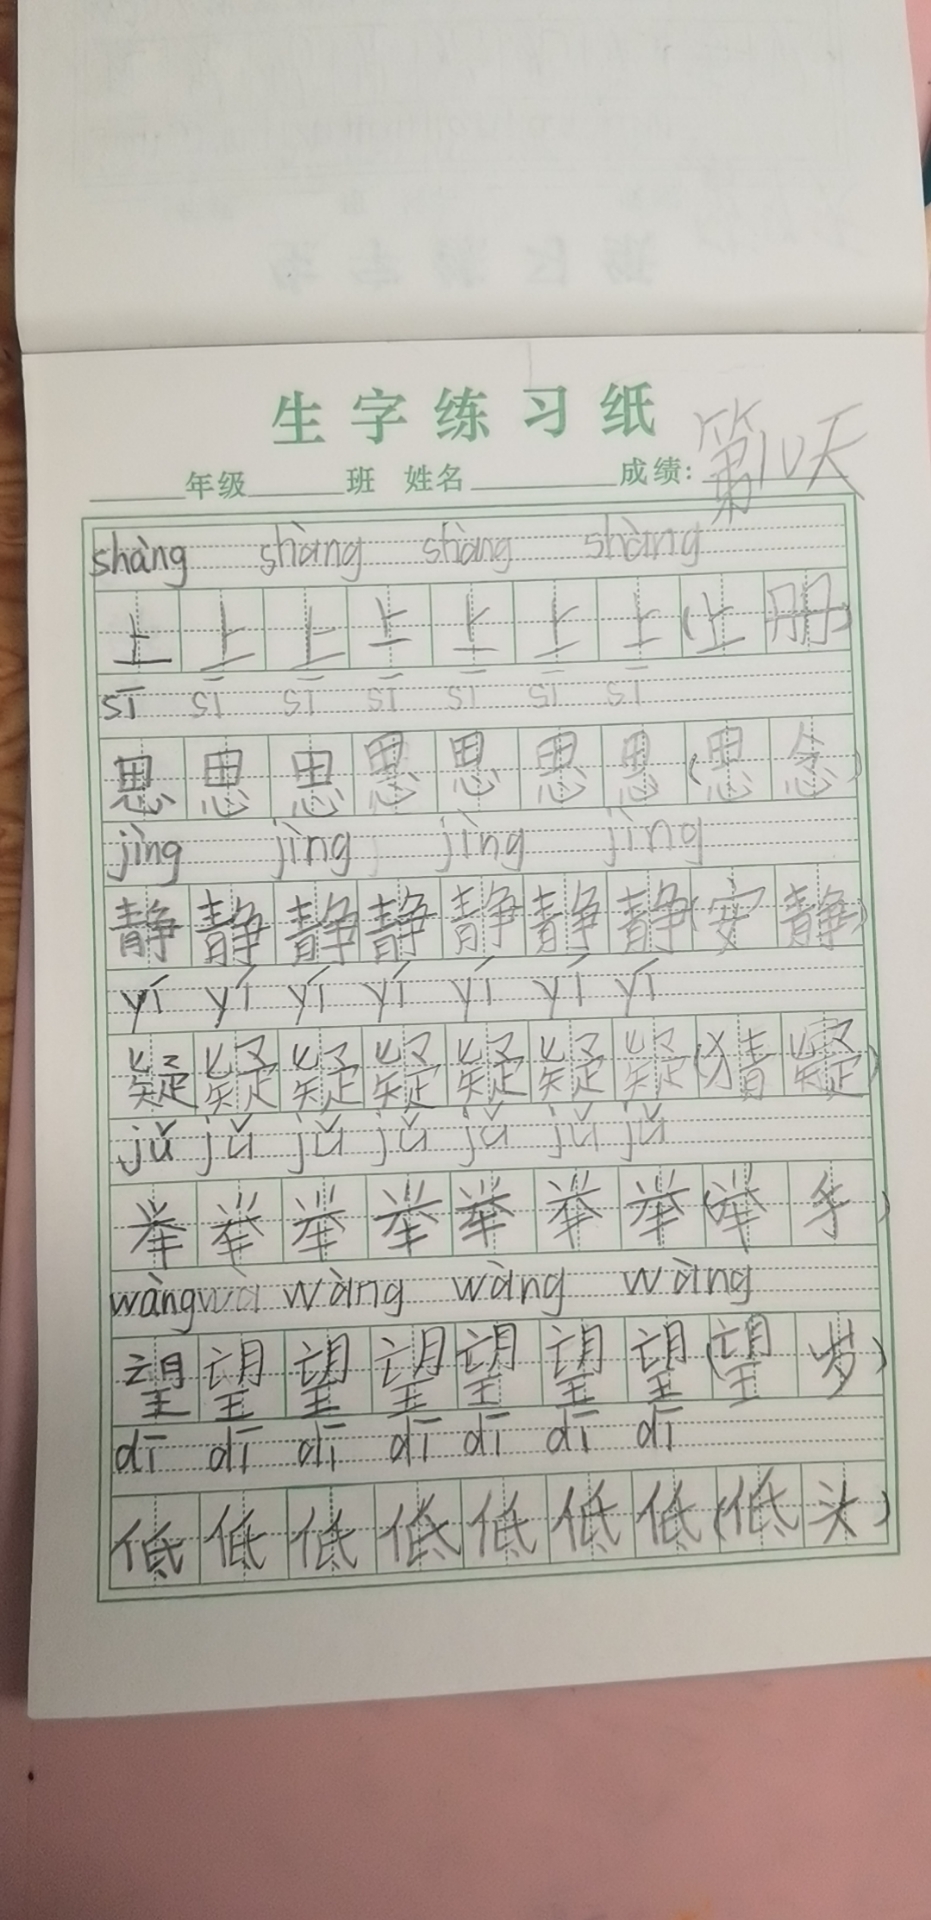 生字练习纸
年级 班 姓名 成绩: 第10天
shàng shàng shàng shàng
上 上 上 上 上 上 上 (上 册)
sī sī sī sī sī sī sī
思 思 思 思 思 思 思 (思 念)
jìng jìng jìng jìng
静 静 静 静 静 静 静 (安 静)
yí yí yí yí yí yí yí
疑 疑 疑 疑 疑 疑 疑 (猜 疑)
jǔ jǔ jǔ jǔ jǔ jǔ jǔ
举 举 举 举 举 举 举 (举 手)
wàng wà wàng wàng wàng
望 望 望 望 望 望 望 (望 岁)
dī dī dī dī dī dī dī
低 低 低 低 低 低 低 (低 头)